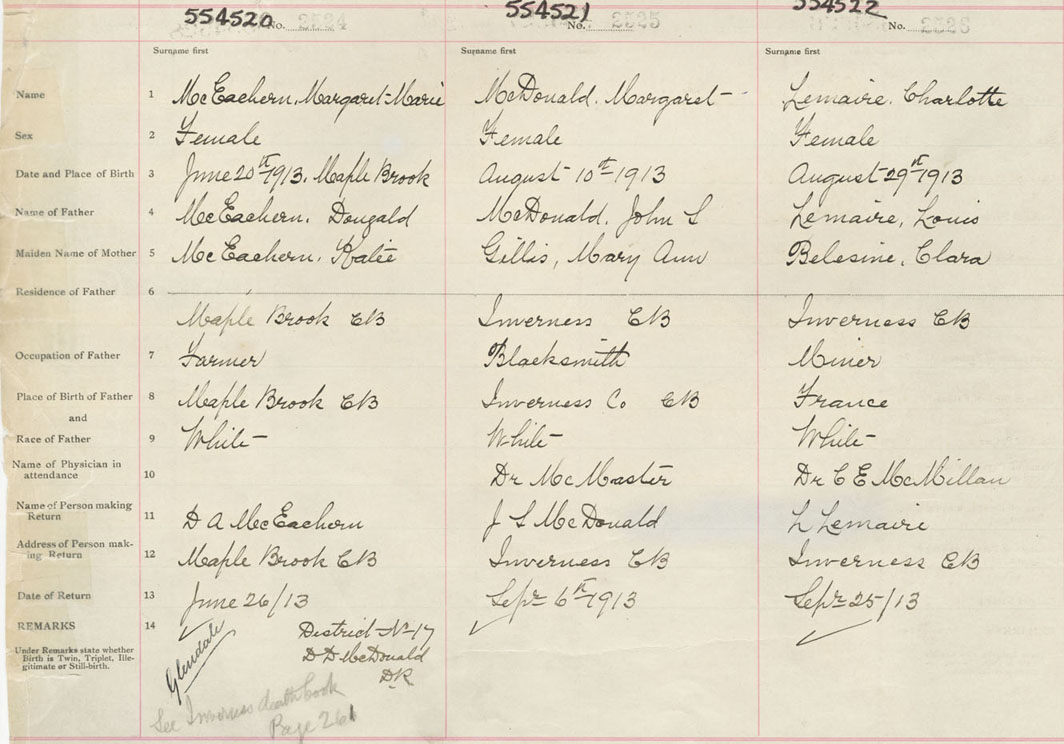 554520 No. 2524 554521 No. 2525 554522 No. 2526
Surname first Surname first Surname first
Name 1 McEachern, Margaret Marie McDonald. Margaret Lemaire. Charlotte
Sex 2 Female Female Female
Date and Place of Birth 3 June 20th 1913. Maple Brook August 10th 1913 August 29th 1913
Name of Father 4 McEachern. Dougald McDonald, John S Lemaire, Louis
Maiden Name of Mother 5 McEachern. Katie Gillis, Mary Ann Belesine, Clara
Residence of Father 6
Maple Brook CB Inverness CB Inverness CB
Occupation of Father 7 Farmer Blacksmith Miner
Place of Birth of Father 8 Maple Brook CB Inverness Co CB France
and
Race of Father 9 White White White
Name of Physician in
attendance 10 Dr McMaster Dr C E McMillan
Name of Person making
Return 11 D A McEachern J S McDonald L Lemaire
Address of Person mak-
ing Return 12 Maple Brook CB Inverness CB Inverness CB
Date of Return 13 June 26/13 Sepr 6th 1913 Sepr 25/13
REMARKS 14 District No 17
Under Remarks state whether
Birth is Twin, Triplet, Ille-
gitimate or Still-birth.
D D McDonald
DR
Glendale
See Inverness death book
Page 261